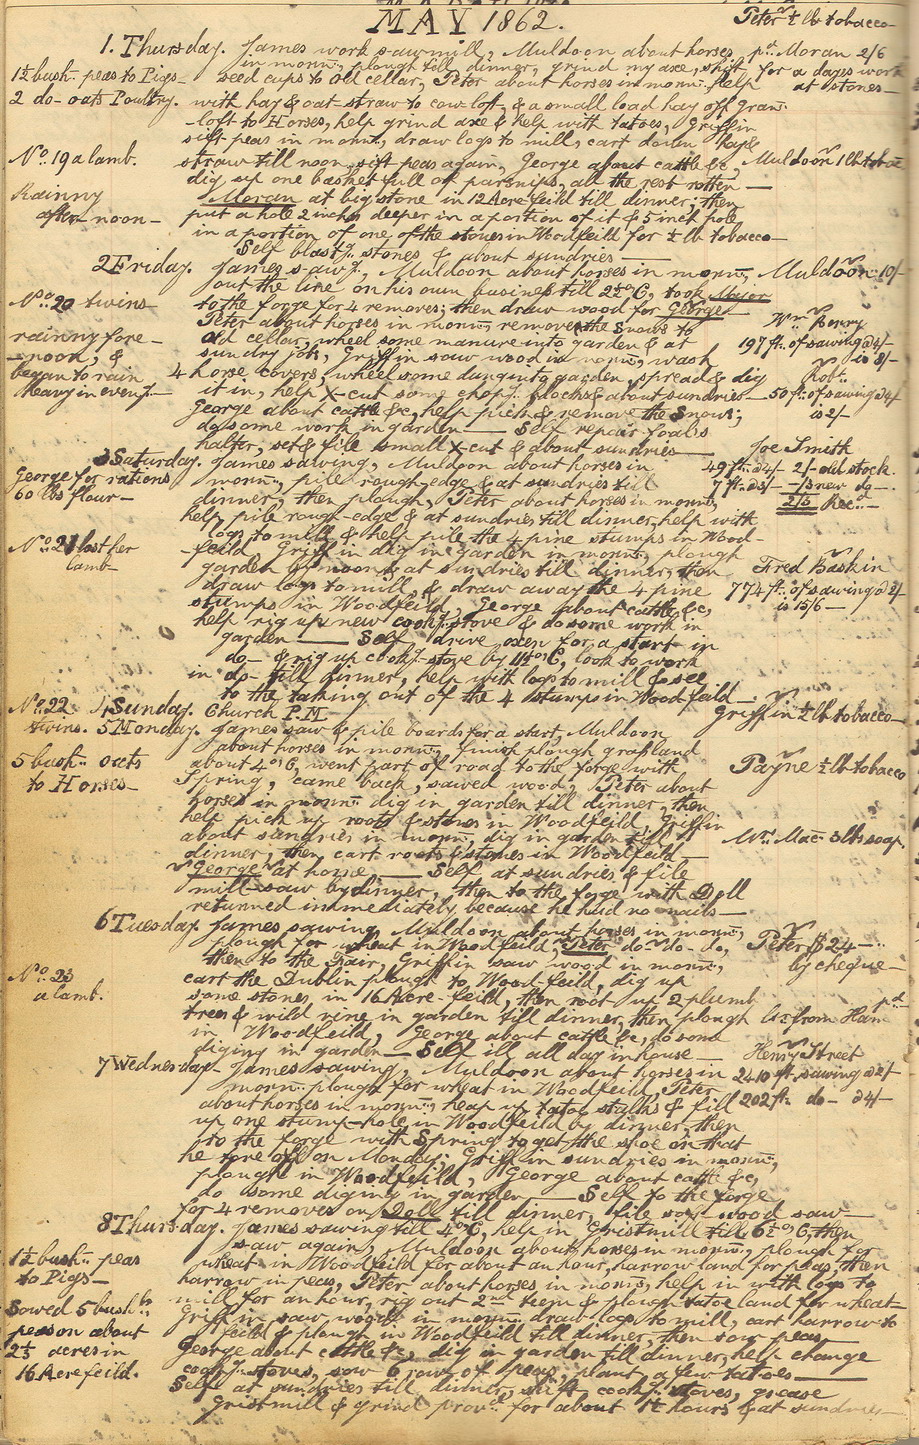 MAY 1862.
Peter ½ lb tobacco
1. Thursday. James work sawmill, Muldoon about horses pd. Moran 2/6
in mornn., plough till dinner, grind my axe, shift for a days work
1½ bush.. peas to Pigs— seed cups to old cellar, Peter about horses in mornn. help at stones—
2 do- oats Poultry. with hay & oat-straw to cow-loft, & a small load hay off Gran-
-loft to Horses, help grind axe & help with tatoes, Griffin
sift peas in mornn., draw logs to mill, cart down
No. 19 a lamb. straw till noon, sift peas again, George about cattle &c, Muldoon 1 lb
dig up one basket full of parsnips, all the rest rotten—
Rainny Moran at big stone in 12 Acre-feild till dinner; then
after-noon— put a hole 2 inches deeper in a portion of it & 5 inch hole
in a portion of one of the stones in Woodfeild for ½ lb tobacco—
Self blastg. stones & about sundries—
2 Friday. James saw'g., Muldoon about horses in mornn., Muldoon 10/-
out the line on his own business till 2½ o'C, took Major
No. 20 twins to the forge for 4 removes; then draw wood for George— Wm. Perry
Peter about horses in mornn. remove the Snows to
rainny fore- old cellar, wheel some manure into garden & at 197 ft. of sawing @ 4/-
-noon, & sundry jobs, Griffin saw wood in mornn., wash is 8/-
began to rain 4 horse covers, wheel some dung into garden, spread & dig Robt.
heavy in eveng.— it in, help X-cut some chopg. blocks & about sundries— 50 ft. of sawing @ 4/-
George about cattle &c, help pick & remove the Snows; is 2/-
do some work in garden— Self repair foal's
halter, set & file small X-cut & about sundries— Joe Smith
3 Saturday. James sawing, Muldoon about horses in 49 ft. @ 4/- 2/- old stock
George for rations mornn., pile rough-edge & at sundries till 7 ft. @ 5/- -/5 new do-
60 lbs flour— dinner, then plough, Peter about horses in mornn., 2/5 Recd.—
help pile rough-edge & at sundries till dinner, help with
No. 21 lost her logs to mill & help pile the 4 pine stumps in Wood-
lamb— -feild Griffin dig in garden in mornn., plough
garden by noon & at sundries till dinner, then Fred Baskin
draw logs to mill & draw away the 4 pine 774 ft. of sawing @ 2/-
stumps in Woodfeild, George about cattle &c, is 15/6—
help rig up new cookg. stove & do some work in
garden— Self drive oxen for a start in
do- & rig up cookg.-stove by 11½ o'C, look to work
in do- till dinner, help with logs to mill & see
to the taking out of the 4 stumps in Woodfeild—
No. 22 4 Sunday. Church P.M Griffin ½ lb tobacco—
twins. 5 Monday. James saw & pile boards for a start, Muldoon
about horses in mornn., finish plough grassland
5 bush.. oats about 4 o'C, went part of road to the forge with Payne ½ lb tobacco
to Horses— Spring, came back, sawed wood, Peter about
horses in mornn. dig in garden till dinner, then
help pick up roots & stones in Woodfeild, Griffin
about sundries in mornn., dig in garden till Mrs. Mac 3 lbs soap.
dinner; then cart roots & stones in Woodfeild—
George at home— Self at sundries & file
mill-saw by dinner, then to the forge with Doll
returned immediately because he had no nails—
6 Tuesday James sawing, Muldoon about horses in mornn.,
plough for wheat in Woodfeild Peter do- do- do, Peter $24—
then to the Fair, Griffin saw wood in mornn., by cheque—
No. 23 cart the Dublin plough to Wood-feild, dig up
a lamb. some stones in 16 Acre-feild, then root up 2 plumb
trees & wild vine in garden till dinner, then plough
in Woodfeild, George about cattle &c, do some
diging in garden— Self ill all day in house— Henry Street
7 Wednesday— James sawing, Muldoon about horses in 2410 ft. sawing @ 2/-
mornn. plough for wheat in Woodfeild, Peter 202 ft. do- @ 4/-
about horses in mornn., heap up tatoe stalks & fill
up one stump-hole in Woodfeild by dinner, then
to the forge with Spring to get the shoe on that
he tore off on Monday; Griffin sundries in mornn.,
plough in Woodfeild, George about cattle &c,
do some diging in garden— Self to the forge
for 4 removes on Doll till dinner, file wood saw—
8 Thursday. James sawing till 4 o'C, help in Gristmill till 6½ o'C, then
saw again, Muldoon about horses in mornn., plough for
1½ bush.. peas wheat in Woodfeild for about an hour, harrow land for peas, then
to Pigs— harrow in peas, Peter about horses in mornn., help in with logs to
mill for an hour, rig out 2nd. team & plough tatoe land for wheat—
Sowed 5 bushls. Griffin saw wood in mornn. draw logs to mill, cart harrow to
peas on about feild & plough in Woodfeild till dinner, then sow peas—
2½ acres in George about cattle &c, dig in garden till dinner, help change
16 Acre feild. cookg. stoves, sow 6 rows of peas, plant a few tatoes—
Self at sundries till dinner, shift cookg. stoves, grease
Gristmill & grind provd. for about 1½ hours & at sundries—